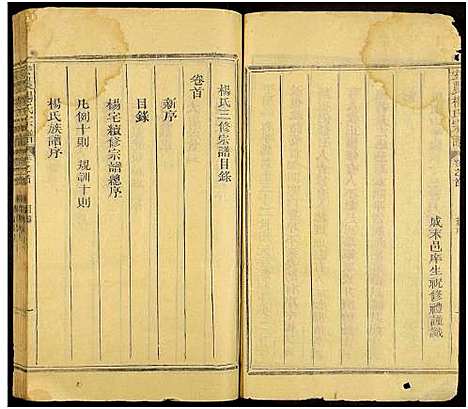 戚末邑庠生祝修禮謹識
楊氏三修宗譜目錄
卷首
新序
目錄
楊宅續修宗譜總序
凡例十則 規訓十則
楊氏族譜序